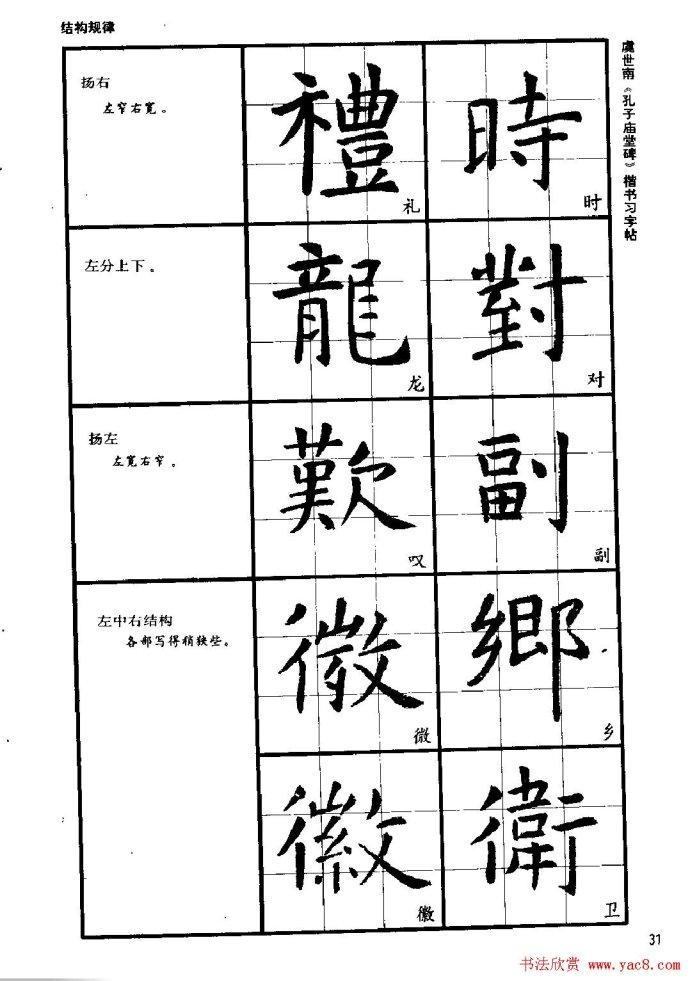 结构规律
虞世南《孔子庙堂碑》楷书习字帖
扬右
左窄右宽。
禮
礼
時
时
左分上下。
龍
龙
對
对
扬左
左宽右窄。
歎
叹
副
副
左中右结构
各部写得稍狭些。
微
微
鄉
乡
徽
徽
衛
卫
31
书法欣赏 www.yac8.com